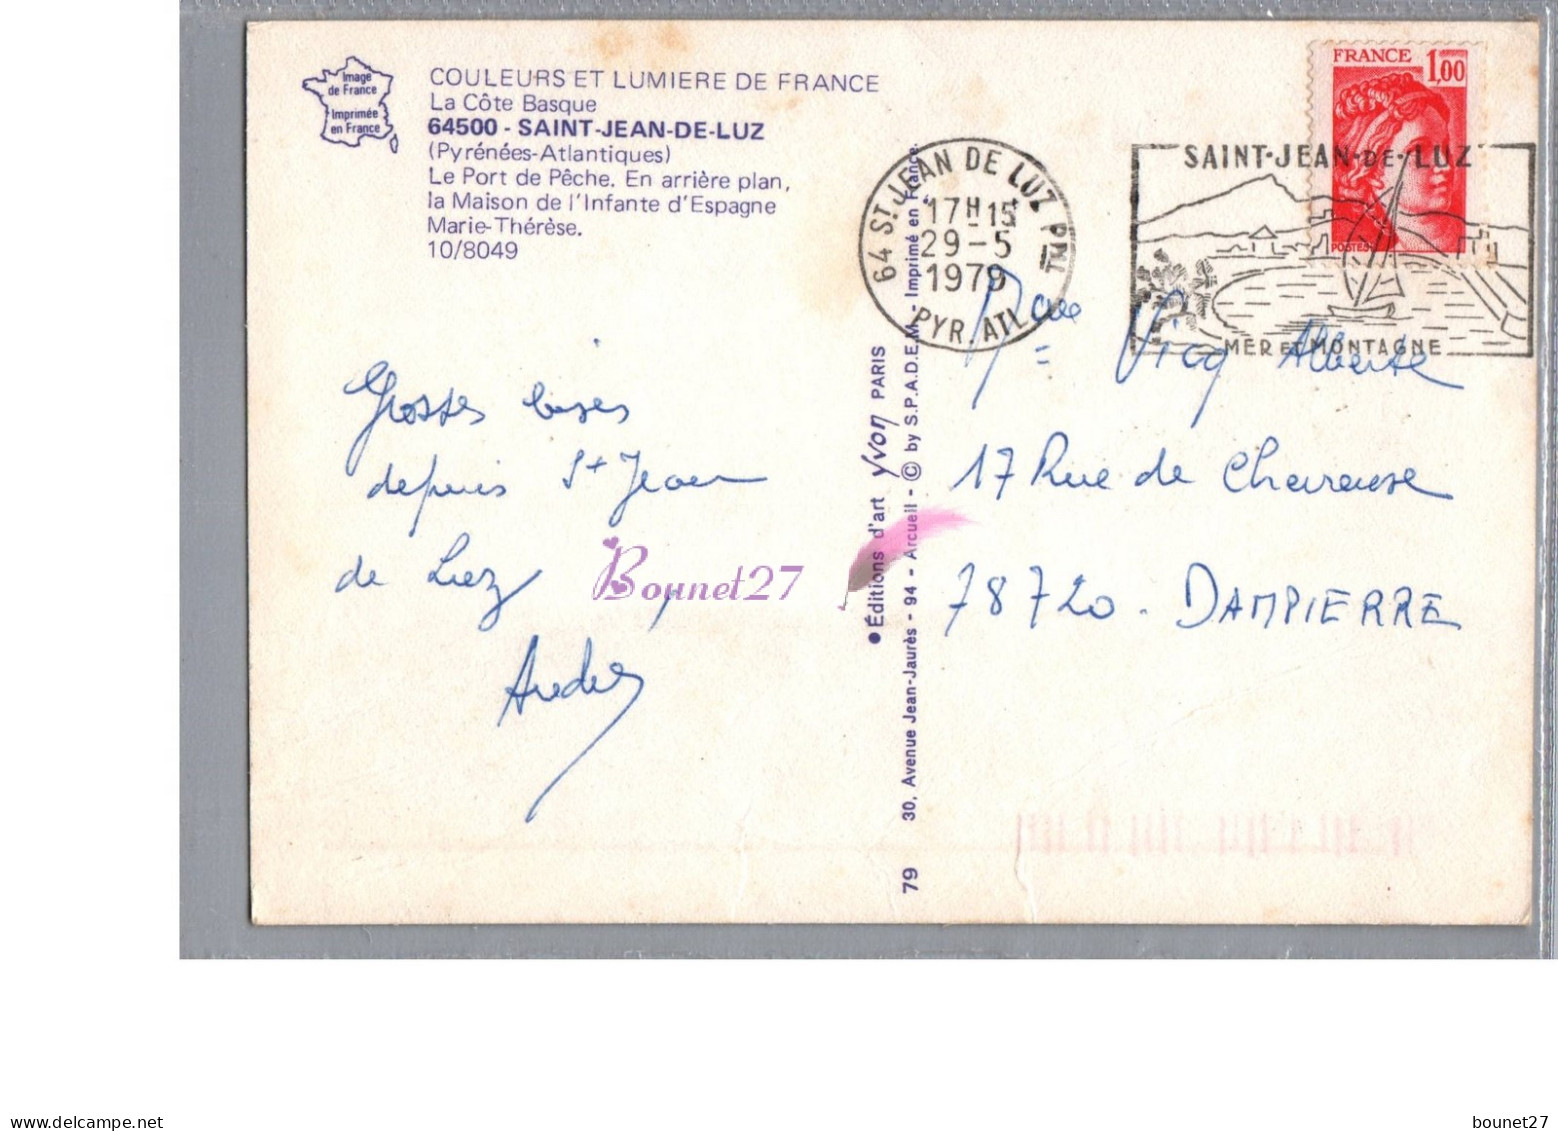 Image
de France
Imprimée
en France
COULEURS ET LUMIERE DE FRANCE
La Côte Basque
64500 - SAINT-JEAN-DE-LUZ
(Pyrénées-Atlantiques)
Le Port de Pêche. En arrière plan,
la Maison de l'Infante d'Espagne
Marie-Thérèse.
10/8049
FRANCE 1,00
POSTES
64 ST JEAN DE LUZ PAL
17H15
29-5
1979
PYR. ATL.
SAINT-JEAN-DE-LUZ
MER ET MONTAGNE
Grosses bises
depuis St Jean
de Luz
Bounet27
Vicq Alberte
17 Rue de Chevreuse
78720 - DAMPIERRE
●Éditions d'art yvon PARIS
79 30, Avenue Jean-Jaurès - 94 - Arcueil - © by S.P.A.D.E.M. - Imprimé en France.
delcampe.net
bounet27